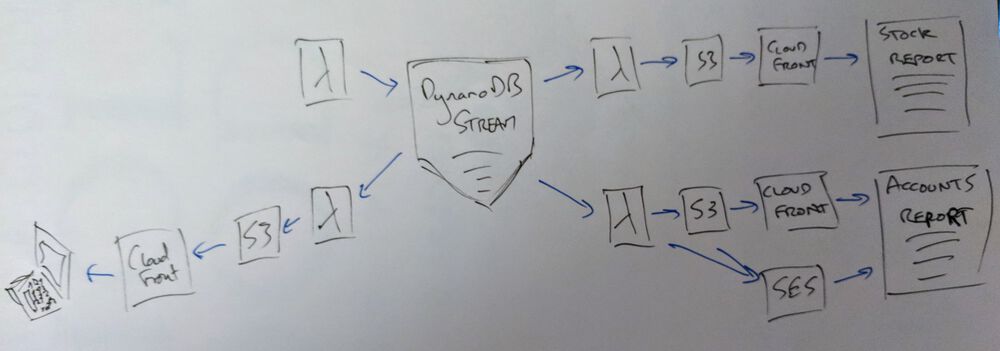 λ
DynamoDB
STREAM
λ
S3
CLOUD
FRONT
STOCK
REPORT
λ
S3
CLOUD
FRONT
ACCOUNTS
REPORT
SES
λ
S3
Cloud
Front